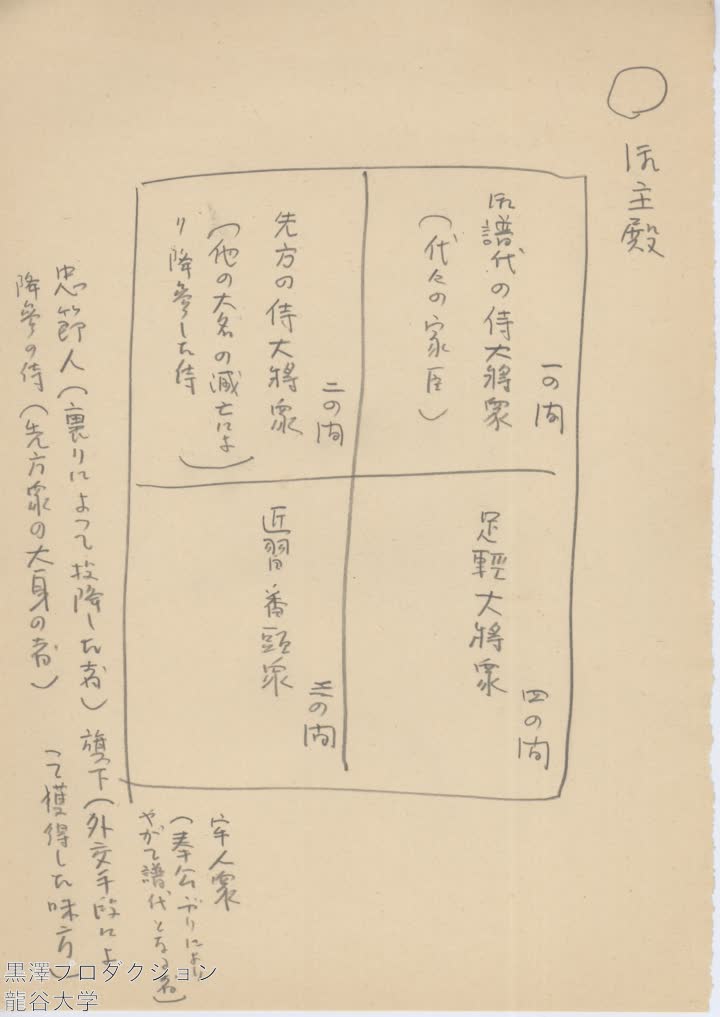 御主殿
一の間
御譜代の侍大將衆
（代々の家臣）
二の間
先方の侍大將衆
（他の大名の滅亡によ
り降參した侍）
四の間
足輕大將衆
三の間
近習番頭衆
牢人衆
（奉公ぶりにより
やがて譜代となる者）
旗下（外交手段によ
って獲得した味方）
忠節人（裏切りによって投降した者）
降參の侍（先方衆の大身の者）
黒澤プロダクション
龍谷大学